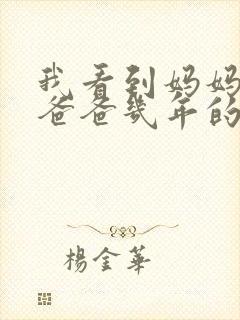 我看到妈妈
爸爸几年的
楊金華